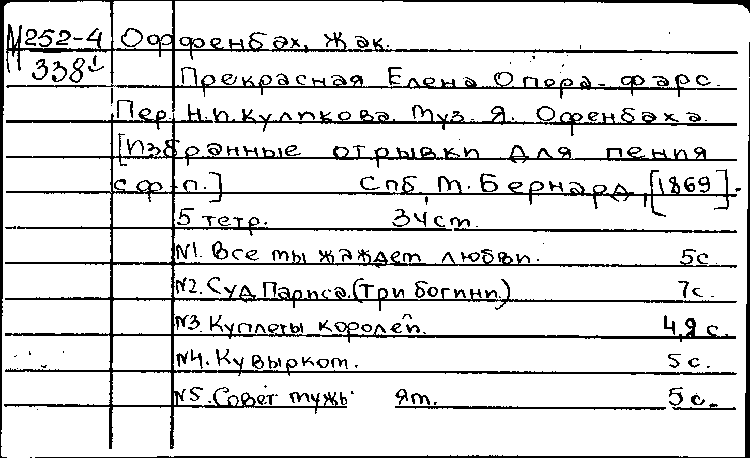 М 252-4 Оффенбах, Жак.
338¹
Прекрасная Елена Опера-фарс.
Пер. Н.И. Куликова. Муз. Я. Офенбаха.
[Избранные отрывки для пения
с ф-п.] Спб, М. Бернард, [1869].
5 тетр. 34 ст.
№1. Все мы жаждем любви. 5 с.
№2. Суд Париса. (Три богини.) 7 с.
№3. Куплеты королей. 4,9 с.
№4. Кувырком. 5 с.
№5. Совет мужь ям. 5 с.